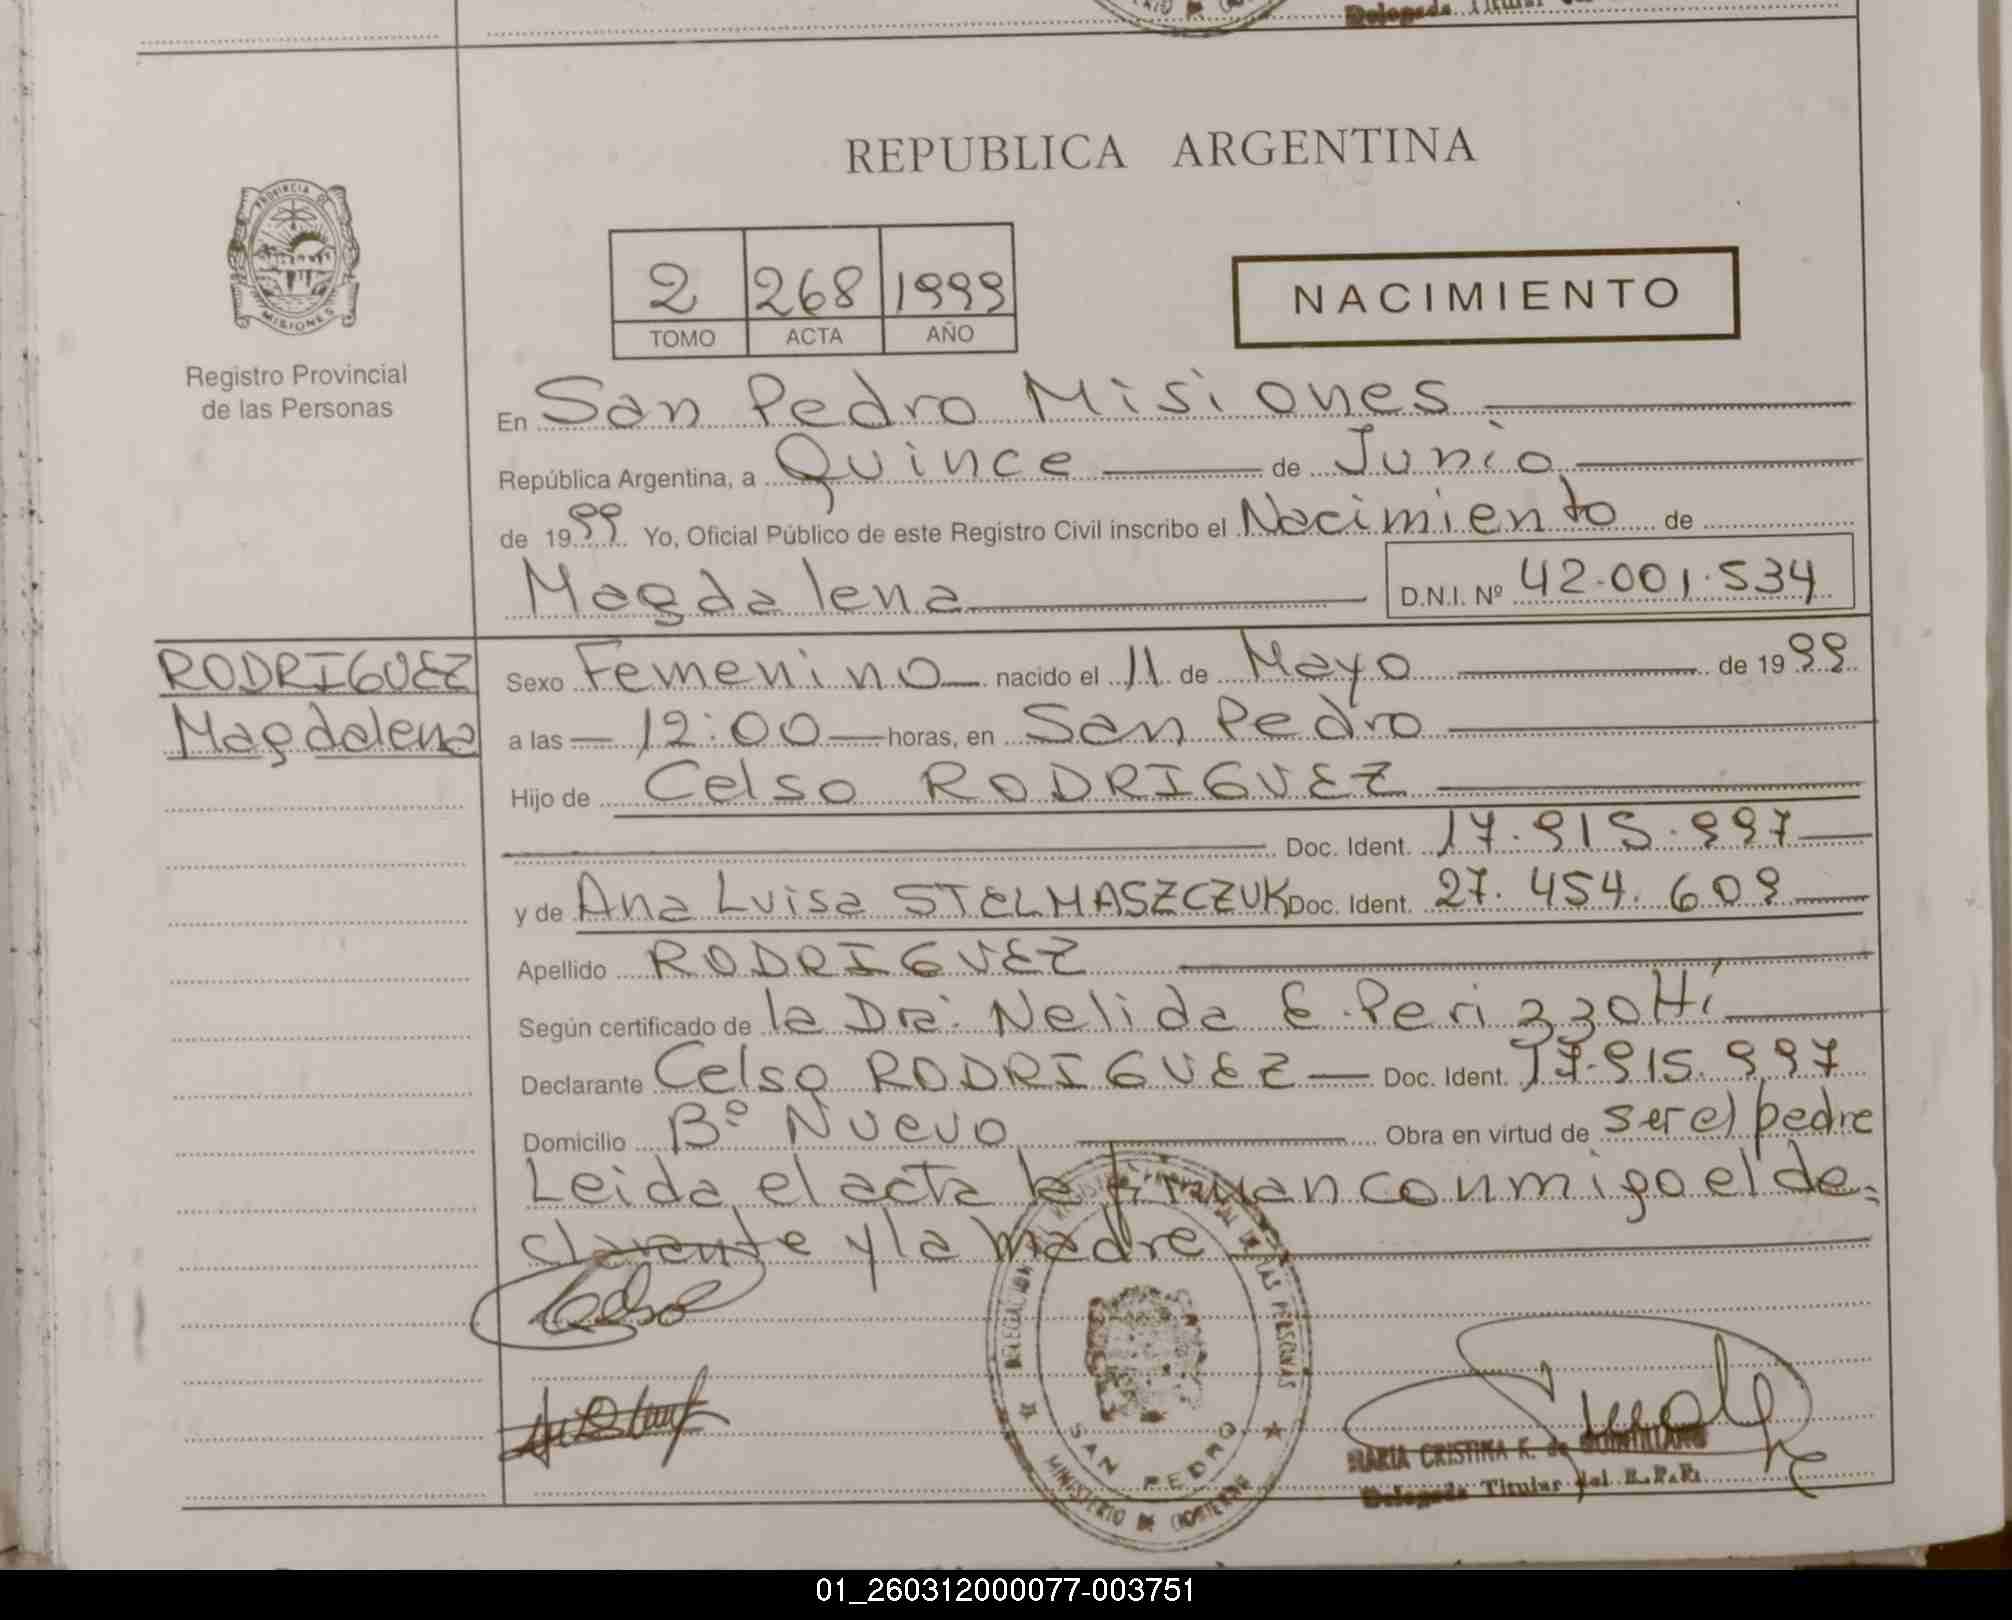 Delegada Titular
REPUBLICA ARGENTINA
PROVINCIA DE
MISIONES
Registro Provincial
de las Personas
2 268 1999
TOMO ACTA AÑO
NACIMIENTO
En San Pedro Misiones
República Argentina, a Quince de Junio
de 1999 Yo, Oficial Público de este Registro Civil inscribo el Nacimiento de
Magdalena D.N.I. Nº 42.001.534
RODRIGUEZ
Magdalena
Sexo Femenino nacido el 11 de Mayo de 1999
a las 12:00 horas, en San Pedro
Hijo de Celso RODRIGUEZ
Doc. Ident. 17.915.997
y de Ana Luisa STELMASZCZUK Doc. Ident. 27.454.609
Apellido RODRIGUEZ
Según certificado de la Dra. Nelida E. Perizzotti
Declarante Celso RODRIGUEZ Doc. Ident. 17.915.997
Domicilio Bº Nuevo Obra en virtud de ser el padre
Leida el acta la firman conmigo el de=
clarante y la madre
Celso
DELEGACION PROVINCIAL DE LAS PERSONAS
SAN PEDRO
MINISTERIO DE GOBIERNO
MARIA CRISTINA K. de QUINTILIANO
Delegada Titular del R.P.P.
01_260312000077-003751